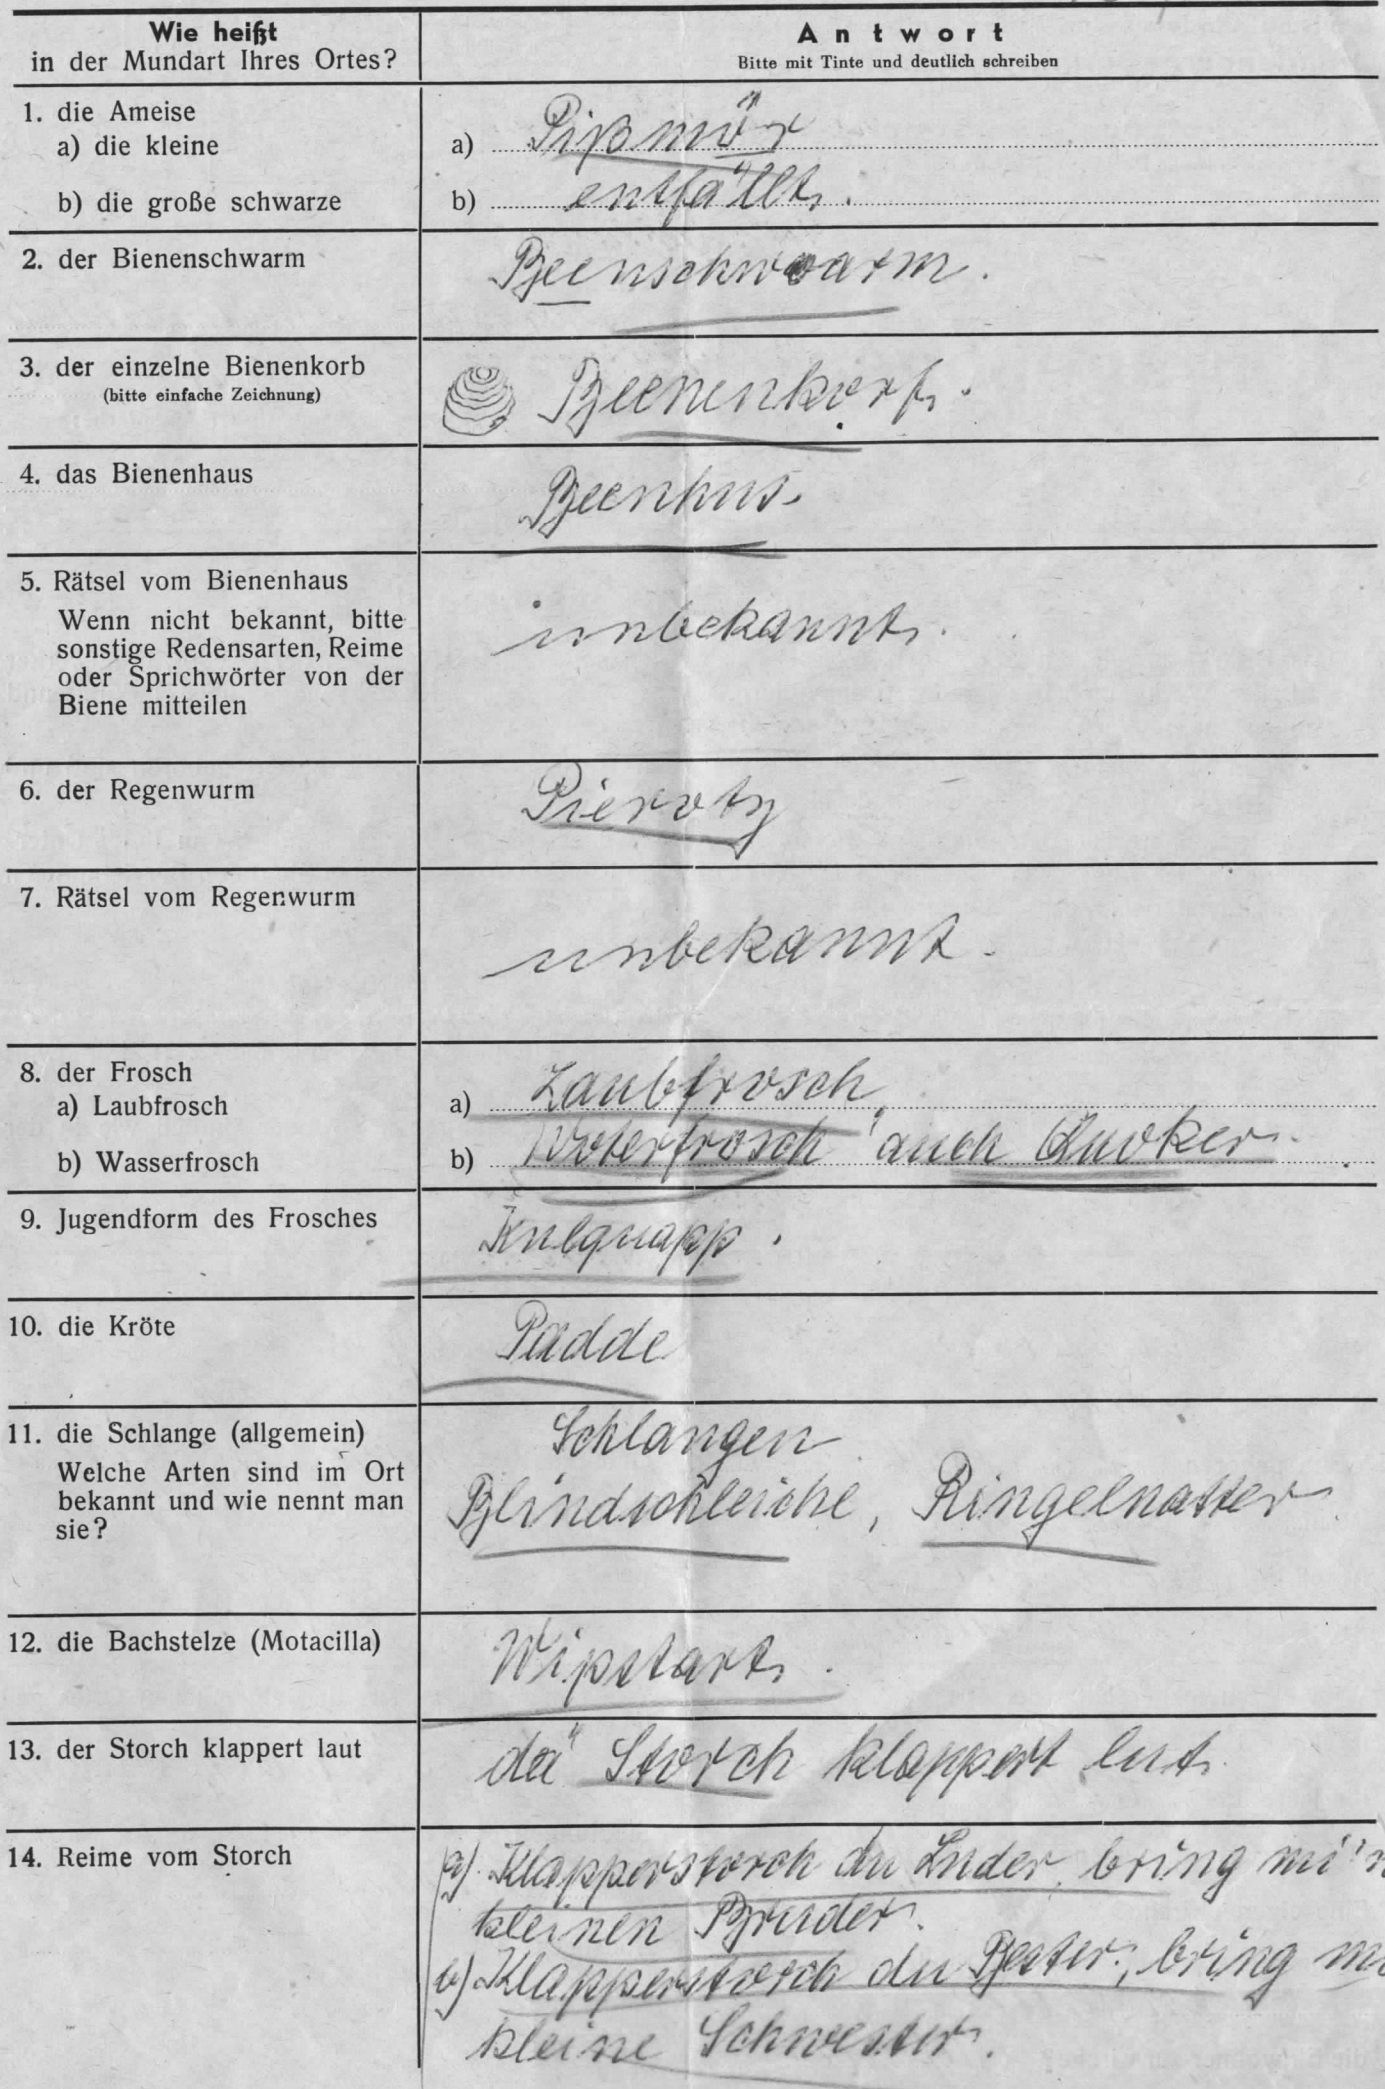 Wie heißt
in der Mundart Ihres Ortes?
Antwort
Bitte mit Tinte und deutlich schreiben
1. die Ameise
a) die kleine
a) Pißmör
b) die große schwarze
b) entfällt.
2. der Bienenschwarm
Beenschwoarm.
3. der einzelne Bienenkorb
(bitte einfache Zeichnung)
Beenenkorf.
4. das Bienenhaus
Beenhus.
5. Rätsel vom Bienenhaus
Wenn nicht bekannt, bitte
sonstige Redensarten, Reime
oder Sprichwörter von der
Biene mitteilen
unbekannt.
6. der Regenwurm
Pierotz
7. Rätsel vom Regenwurm
unbekannt.
8. der Frosch
a) Laubfrosch
a) Laubfrosch,
b) Wasserfrosch
b) Woterfrosch auch Quoker.
9. Jugendform des Frosches
Kulquapp.
10. die Kröte
Padde
11. die Schlange (allgemein)
Welche Arten sind im Ort
bekannt und wie nennt man
sie?
Schlangen
Blindschleiche, Ringelnatter
12. die Bachstelze (Motacilla)
Wipstart.
13. der Storch klappert laut
dä Storch klappert lut.
14. Reime vom Storch
a). Klapperstorch du Luder, bring mi
kleinen Bruder.
b) Klapperstorch du Bester, bring
kleine Schwester.